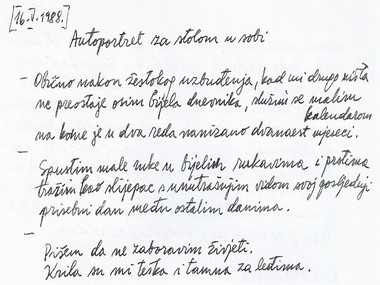 [16.V.1988.]
Autoportret za stolom u sobi
– Obično nakon žestokog uzbuđenja, kad mi drugo ništa
ne preostaje osim bijela dnevnika, služim se malim
kalendarom
na kome je u dva reda nanizano dvanaest mjeseci.
– Spustim male ruke u bijelim rukavima i prstima
tražim kao slijepac s unutrašnjim vidom svoj posljednji
prisebni dan među ostalim danima.
–
Pišem da ne zaboravim živjeti.
Krila su mi teška i tamna za leđima.